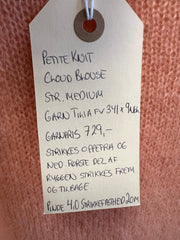 PETITE KNIT
CLOUD BLOUSE
STR. MEDIUM
GARN TILIA FV 341 x 9NGL
GARNPRIS 729,-
STRIKKES OPPEFRA OG
NED. FØRSTE DEL AF
RYGGEN STRIKKES FREM
OG TILBAGE
PINDE 4.0 STRIKKEFASTHED 20M